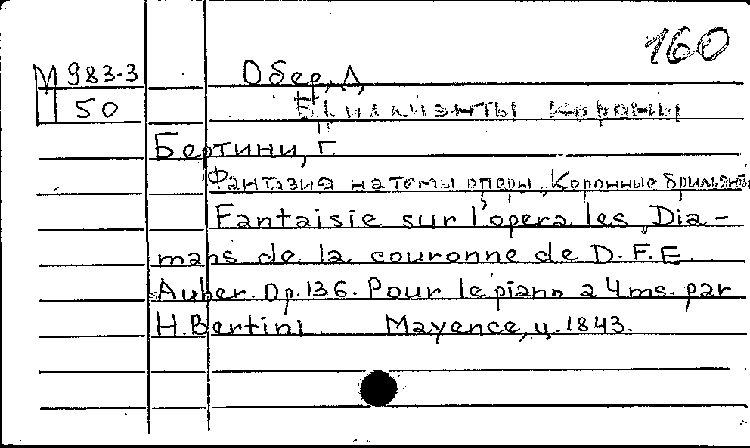 160
М 983-3 Обер, Д
П 50 Бриллиэнты короны
Бертини, Г.
Фантазия на темы оперы „Коронные брильянты
Fantaisie sur l'opera les Dia-
mans de la couronne de D.F.E.
Auber. Op.136. Pour le piano a 4 ms. par
H. Bertini Mayence, ц. 1843.